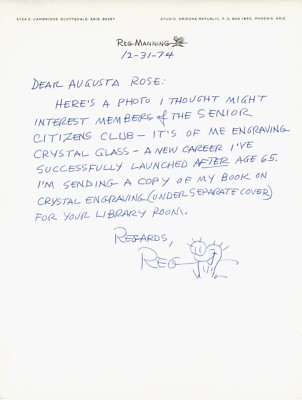 5724 E. CAMBRIDGE, SCOTTSDALE, ARIZ. 85257
STUDIO: ARIZONA REPUBLIC, P.O. BOX 1950, PHOENIX, ARIZ.
REG MANNING
12-31-74
DEAR AUGUSTA ROSE:
HERE'S A PHOTO I THOUGHT MIGHT
INTEREST MEMBERS of the SENIOR
CITIZENS CLUB – IT'S OF ME ENGRAVING
CRYSTAL GLASS – A NEW CAREER I'VE
SUCCESSFULLY LAUNCHED AFTER AGE 65.
I'M SENDING A COPY OF MY BOOK ON
CRYSTAL ENGRAVING (UNDER SEPARATE COVER)
FOR YOUR LIBRARY ROOM.
REGARDS,
REG